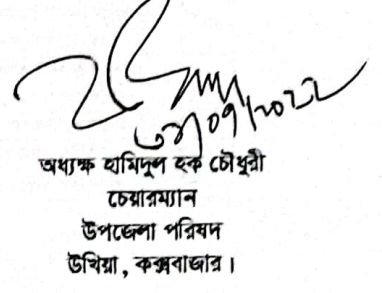 অধ্যক্ষ হামিদুল হক চৌধুরী
চেয়ারম্যান
উপজেলা পরিষদ
উখিয়া, কক্সবাজার।